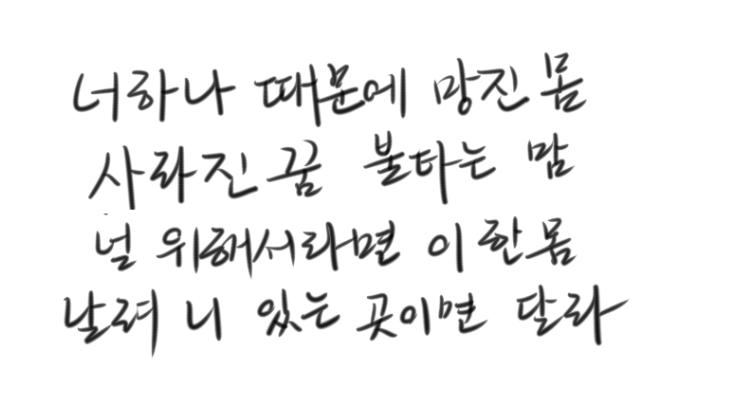 너하나 때문에 망진 몸
사라진 꿈 불타는 맘
널 위해서라면 이 한 몸
날려 니 있는 곳이면 달라